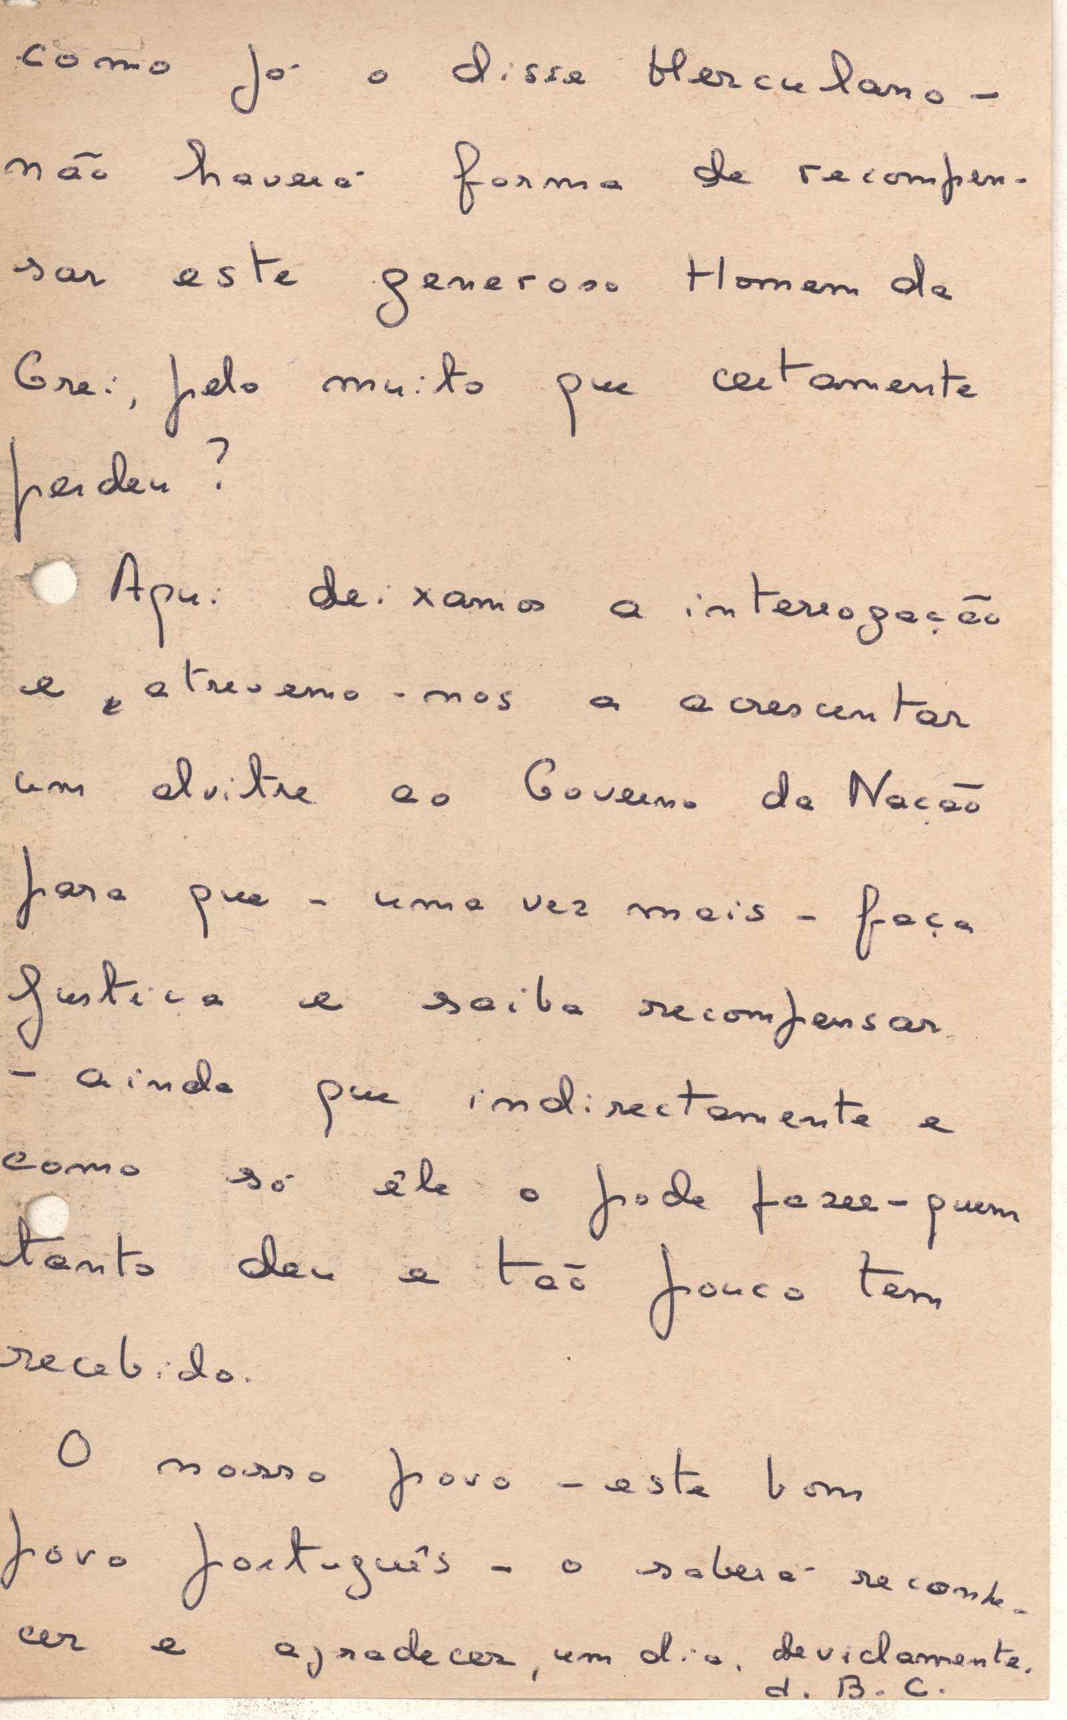 como já o disse Herculano -
não haverá forma de recompen-
sar este generoso Homem da
Grei, pelo muito que certamente
perdeu?
Aqui deixamos a interrogação
e, atrevemo-nos a acrescentar
um alvitre ao Governo da Nação
para que - uma vez mais - faça
Justiça e saiba recompensar
- ainda que indirectamente e
como só êle o pode fazer - quem
tanto deu e tão pouco tem
recebido.
O nosso povo - este bom
povo português - o saberá reconhe-
cer e agradecer, um dia, devidamente.
d. B. C.